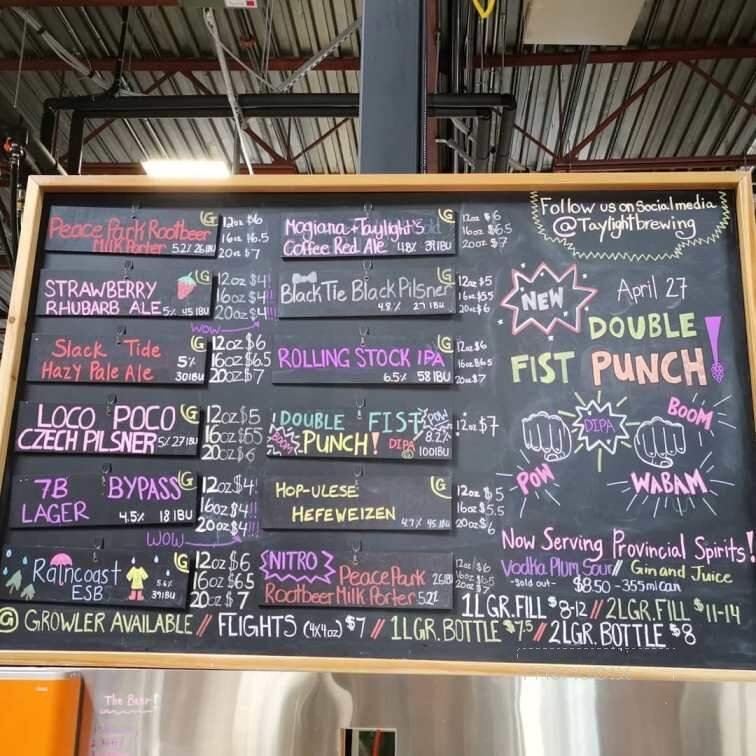 Peace Park Rootbeer
Milk Porter 5.2% 26 IBU
G
12oz $6
16oz $6.5
20oz $7
STRAWBERRY
RHUBARB ALE 5% 45 IBU
G
12oz $4!
16oz $4!!
20oz $4!!!
WOW
Slack Tide
Hazy Pale Ale
5%
30 IBU
G
12oz $6
16oz $6.5
20oz $7
LOCO POCO
CZECH PILSNER 5% 27 IBU
G
12oz $5
16oz $5.5
20oz $6
7B BYPASS
LAGER 4.5% 18 IBU
G
12oz $4!
16oz $4!!
20oz $4!!!
WOW
Raincoast
ESB
5.6%
39 IBU
G
12oz $6
16oz $6.5
20oz $7
Mogiana + Taylight's
Coffee Red Ale 4.8% 39 IBU
G
12oz $6
16oz $6.5
20oz $7
Black Tie Black Pilsner
4.8% 27 IBU
G
12oz $5
16oz $5.5
20oz $6
ROLLING STOCK IPA
6.5% 58 IBU
G
12oz $6
16oz $6.5
20oz $7
DOUBLE FIST
PUNCH! DIPA
BOOM
POW
8.2%
100 IBU
12oz $7
HOP-ULESE
HEFEWEIZEN
4.7% 45 IBU
G
12oz $5
16oz $5.5
20oz $6
NITRO
Peace Park 26 IBU
Rootbeer Milk Porter 5.2%
12oz $6
16oz $6.5
20oz $7
Follow us on Social media
@Taylightbrewing
NEW
April 27
DOUBLE
FIST PUNCH!
DIPA
BOOM
POW
WABAM
Now Serving Provincial Spirits!
Vodka Plum Sour // Gin and Juice
-Sold out- $8.50 - 355ml can
1LGR. FILL $8-12 // 2LGR. FILL $11-14
G GROWLER AVAILABLE // FLIGHTS (4x4oz) $7 // 1LGR. BOTTLE $7.5 // 2LGR. BOTTLE $8
The Beer!